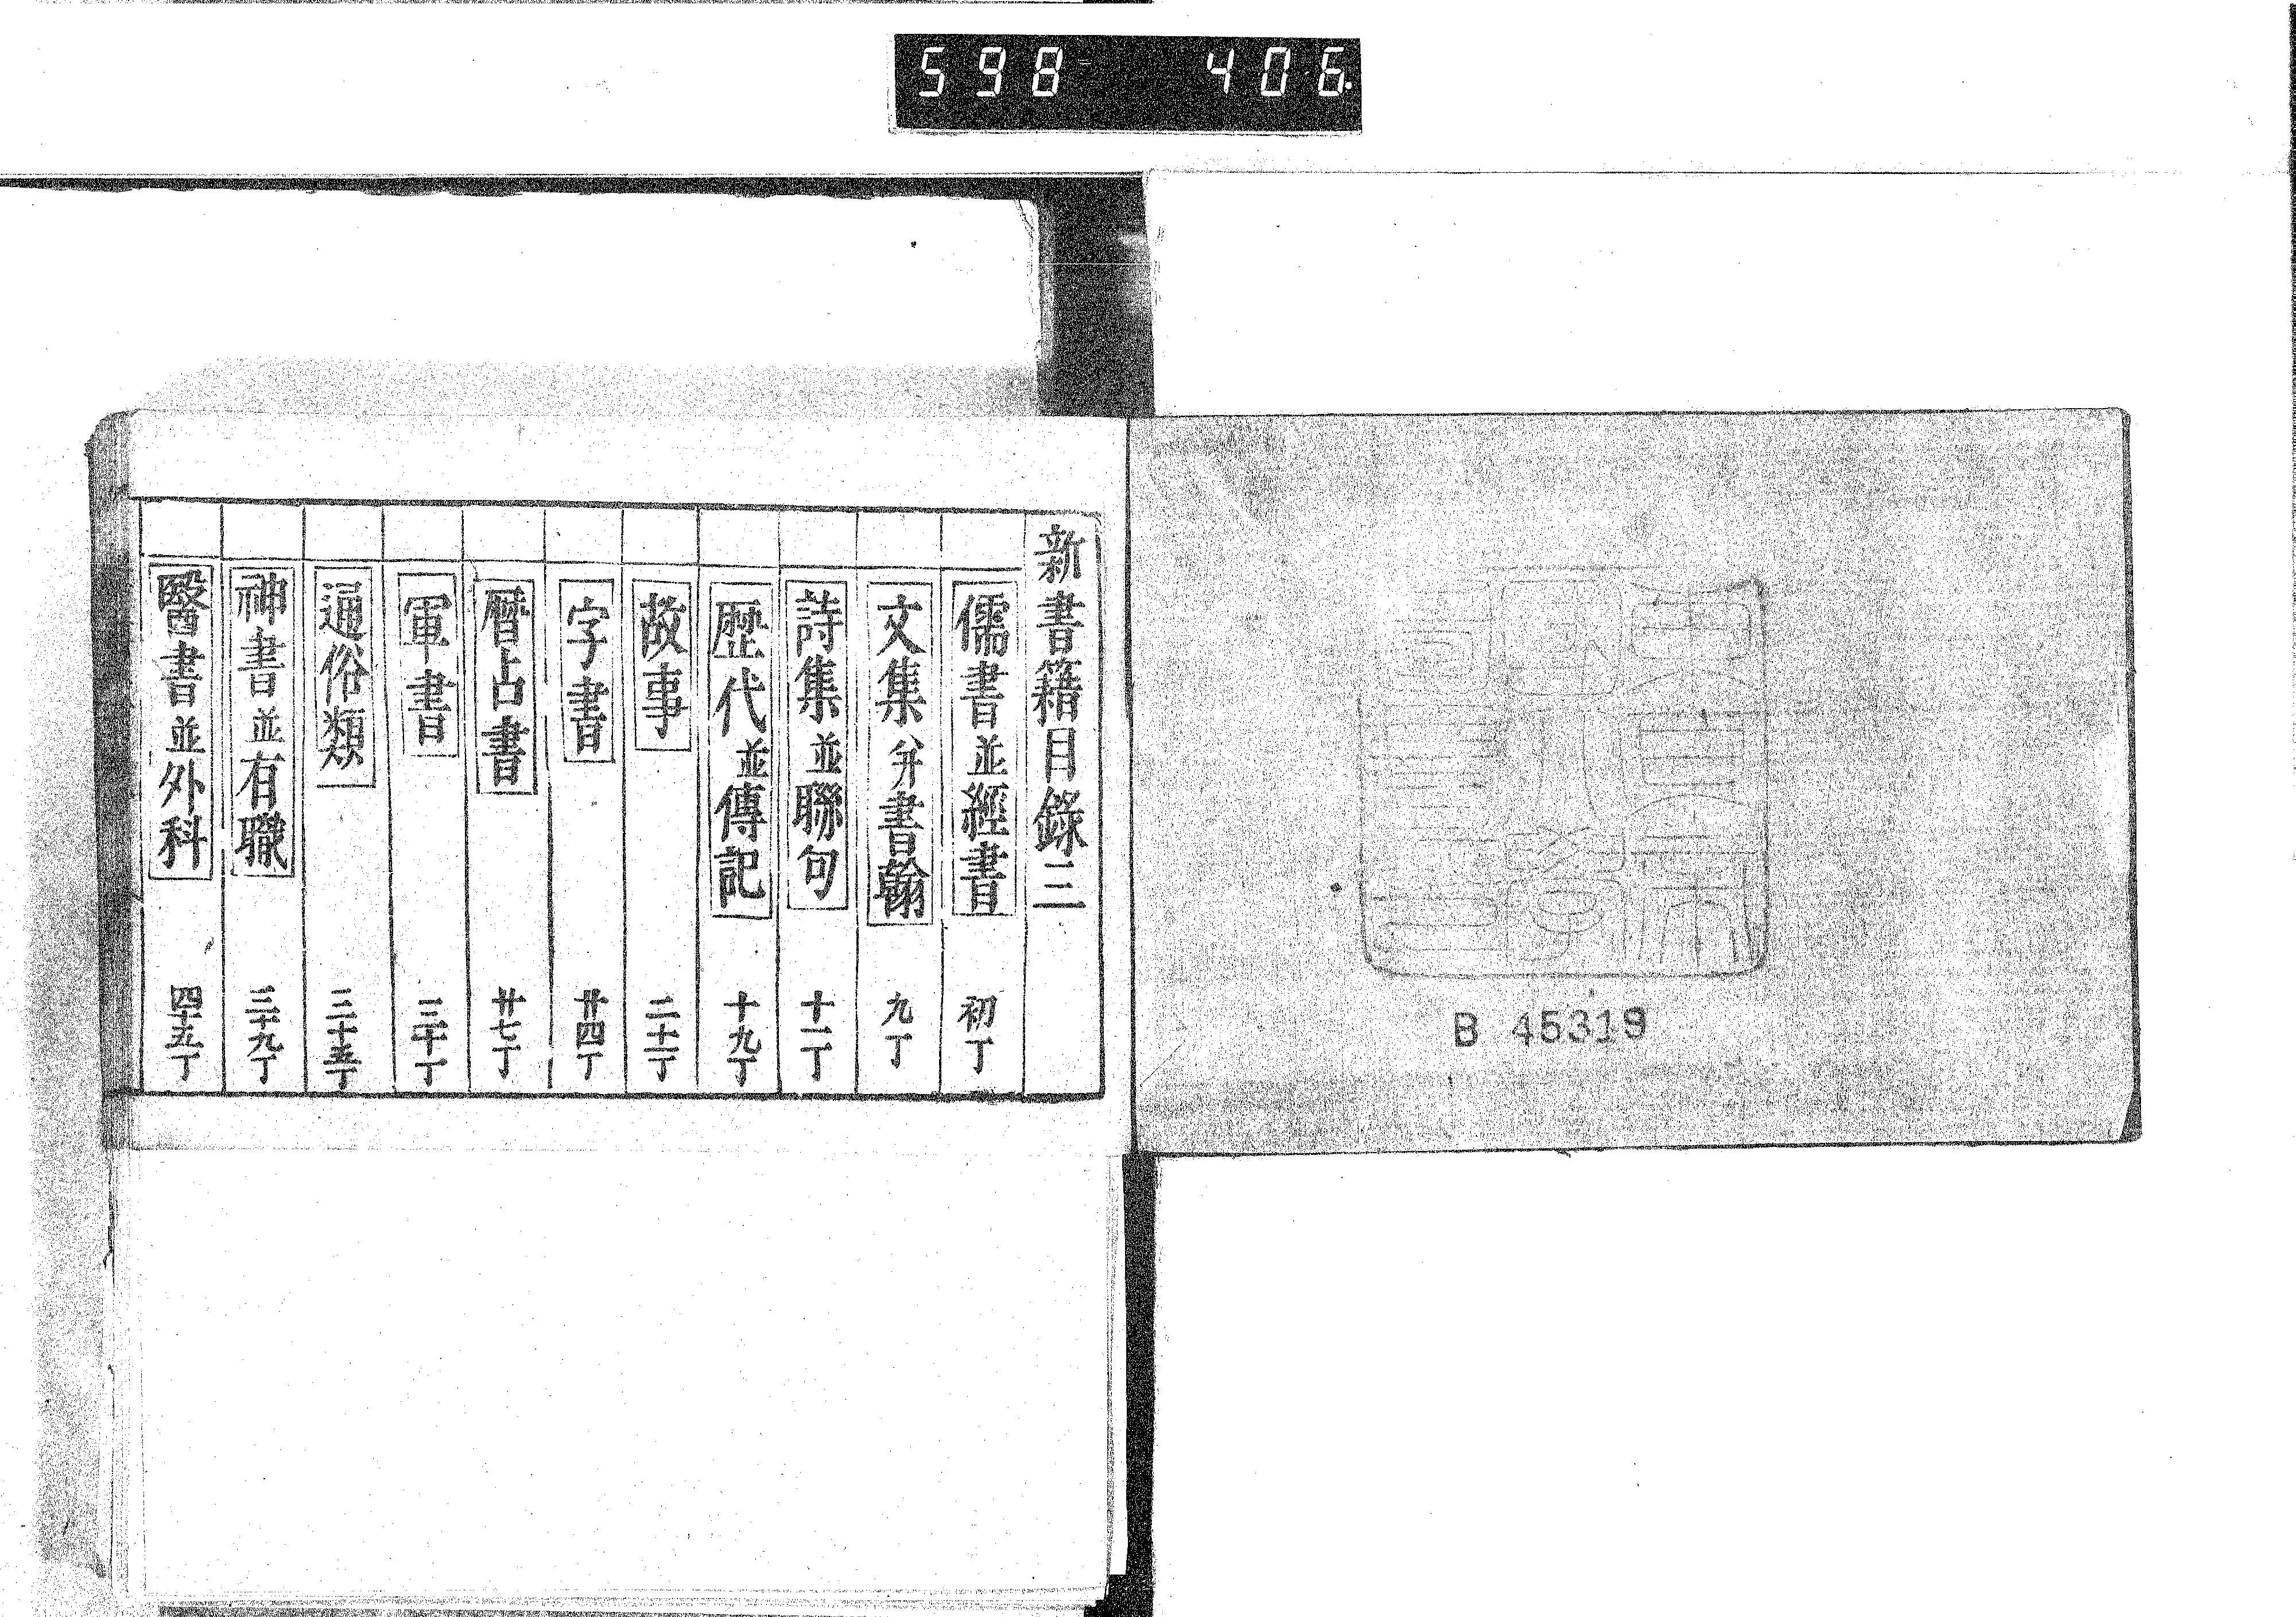 598 406.
B 45319
新書籍目錄三
儒書並經書 初丁
文集并書翰 九丁
詩集並聯句 十一丁
歷代並傳記 十九丁
故事 二十二丁
字書 廿四丁
暦占書 廿七丁
軍書 三十丁
通俗類 三十五丁
神書並有職 三十九丁
醫書並外科 四十五丁